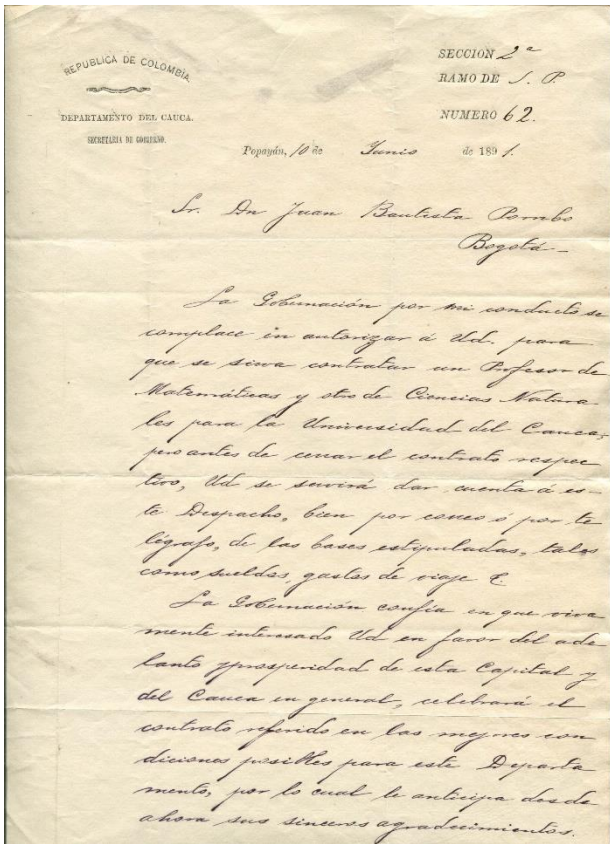 REPUBLICA DE COLOMBIA.
DEPARTAMENTO DEL CAUCA.
SECRETARIA DE GOBIERNO.
SECCION 2ª
RAMO DE I. P.
NUMERO 62.
Popayán, 10 de Junio de 1891.
Sr. Dn Juan Bautista Pombo
Bogotá-
La Gobernación por mi conducto se
complace in autorizar á Ud. para
que se sirva contratar un Profesor de
Matemáticas y otro de Ciencias Natura
les para la Universidad del Cauca;
pero antes de cerrar el contrato respec
tivo, Ud se servirá dar cuenta á es-
te Despacho, bien por correo ó por te
légrafo, de las bases estipuladas, tales
como sueldos, gastos de viaje &.
La Gobernación confía en que viva
mente interesado Ud en favor del ade
lanto y prosperidad de esta Capital y
del Cauca en general, celebrará el
contrato referido en las mejores con
diciones posibles para este Departa
mento, por lo cual le anticipa desde
ahora sus sinceros agradecimientos.